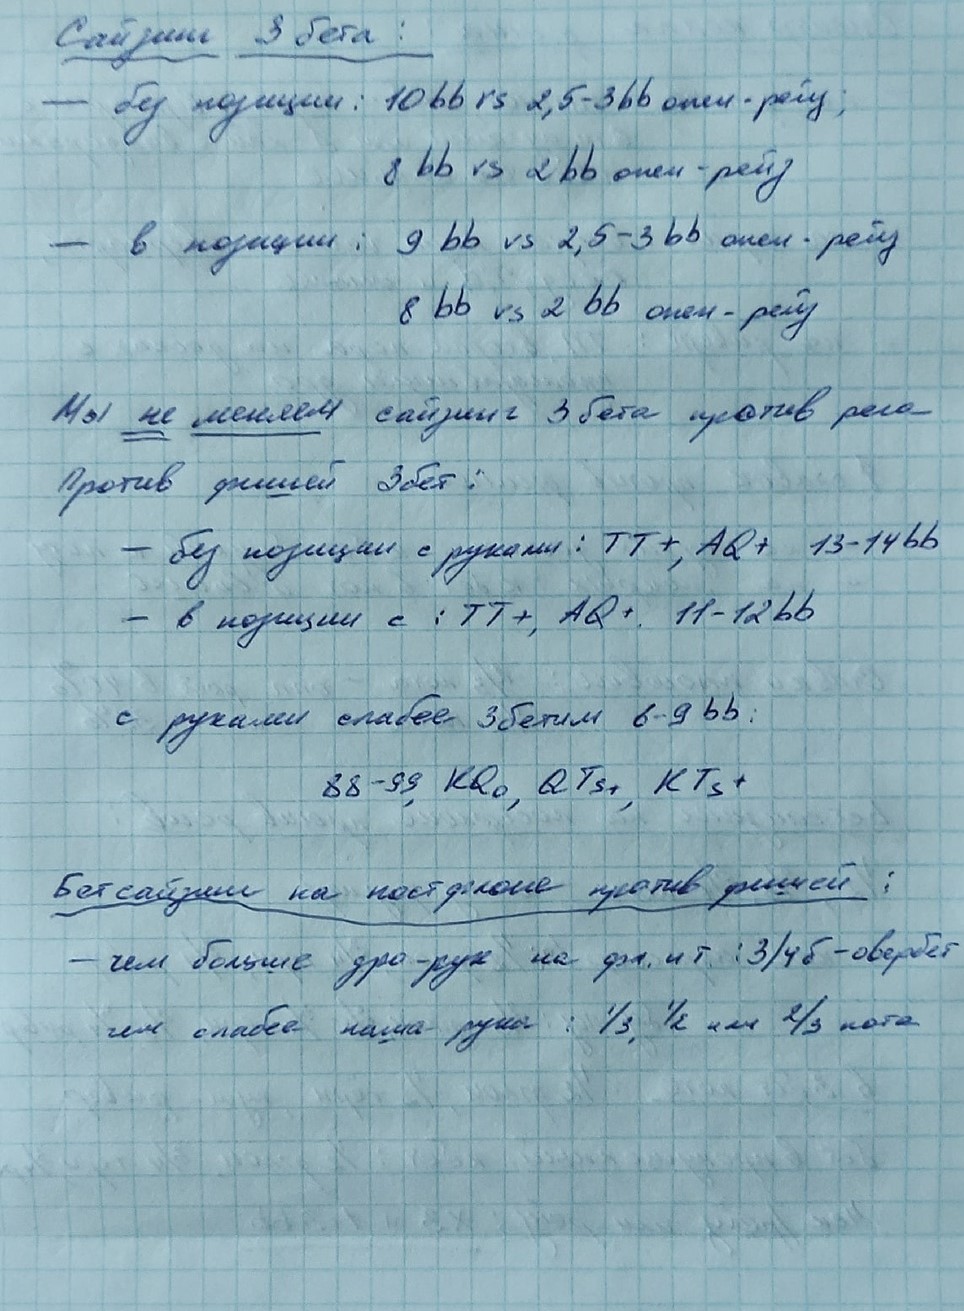 Сайзинг 3бета:
— без позиции: 10bb vs 2,5-3bb опен-рейз;
8bb vs 2bb опен-рейз
— в позиции: 9bb vs 2,5-3bb опен-рейз
8bb vs 2bb опен-рейз
Мы не меняем сайзинг 3бета против рега
Против фишей 3бет:
— без позиции с руками: TT+, AQ+ 13-14bb
— в позиции с: TT+, AQ+. 11-12bb
с руками слабее 3бетим 8-9bb:
88-99, KQo, QTs+, KTs+
Бетсайзинг на постфлопе против фишей:
— чем больше дро-рук на фл. и т.: 3/4б-овербет
чем слабее наша рука: 1/3, 1/2 или 2/3 пота